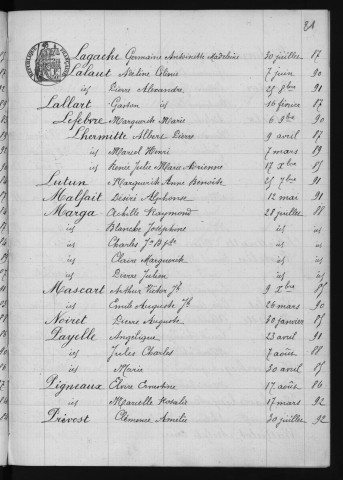 31
Lagache Germaine Antoinette Madeleine 30 juillet 87
Lalaut Narline Céline 7 juin 90
id Pierre Alexandre 25 8bre 91
Lallart Gaston id 16 février 87
Lefebre Marguerite Marie 6 9bre 90
Lhermitte Albert Pierre 9 avril 87
id Marcel Henri 7 mars 89
id René Jules Marie Adrienne 17 Xbre 85
Lutun Marguerite Anna Benoite 25 7bre 91
Malfait Désiré Alphonse 12 mai 91
Marga Achille Raymond 28 juillet 88
id Blanche Joséphine id id
id Charles Jn Bpte id id
id Claire Marguerite id id
id Pierre Julien id id
Mascart Arthur Victor Jh 9 Xbre 85
id Emile Auguste Jh 26 mars 90
Noiret Pierre Auguste 30 janvier 85
Payelle Angélique 23 avril 91
id Jules Charles 7 août 88
id Marie 30 avril 85
Pigneaux Elvire 17 août 86
id Marcelle Rosalie 17 mars 92
Prévost Clémence Amélie 30 juillet 92